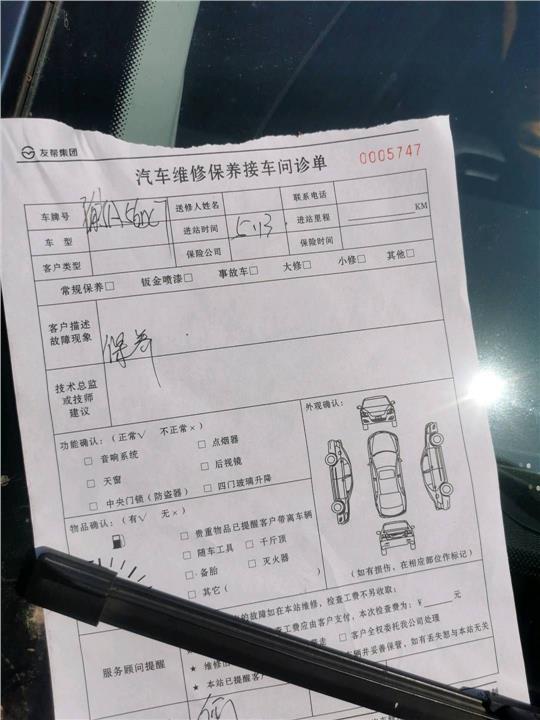 友帮集团
汽车维修保养接车问诊单 0005747
车牌号 送修人姓名 联系电话
车 型 进站时间 5.13 进站里程 KM
客户类型 保险公司 保险时间
常规保养□ 钣金喷漆□ 事故车□ 大修□ 小修□ 其他□
客户描述
故障现象
保养
技术总监
或技师
建议
功能确认:(正常√ 不正常×) 外观确认:
□ 音响系统 □ 点烟器
□ 天窗 □ 后视镜
□ 中央门锁(防盗器) □ 四门玻璃升降
物品确认:(有√ 无×)
□ 贵重物品已提醒客户带离车辆
□ 随车工具 □ 千斤顶
□ 备胎 □ 灭火器
□ 其它( )
(如有损伤,在相应部位作标记)
的故障如在本站维修,检查工费不另收取;
工费应由客户支付,本次检查费为:¥ 元
走 □ 客户全权委托我公司处理
服务顾问提醒
★ 维修
车辆并妥善保管,如有丢失恕与本站无关
★ 本站已提醒客户